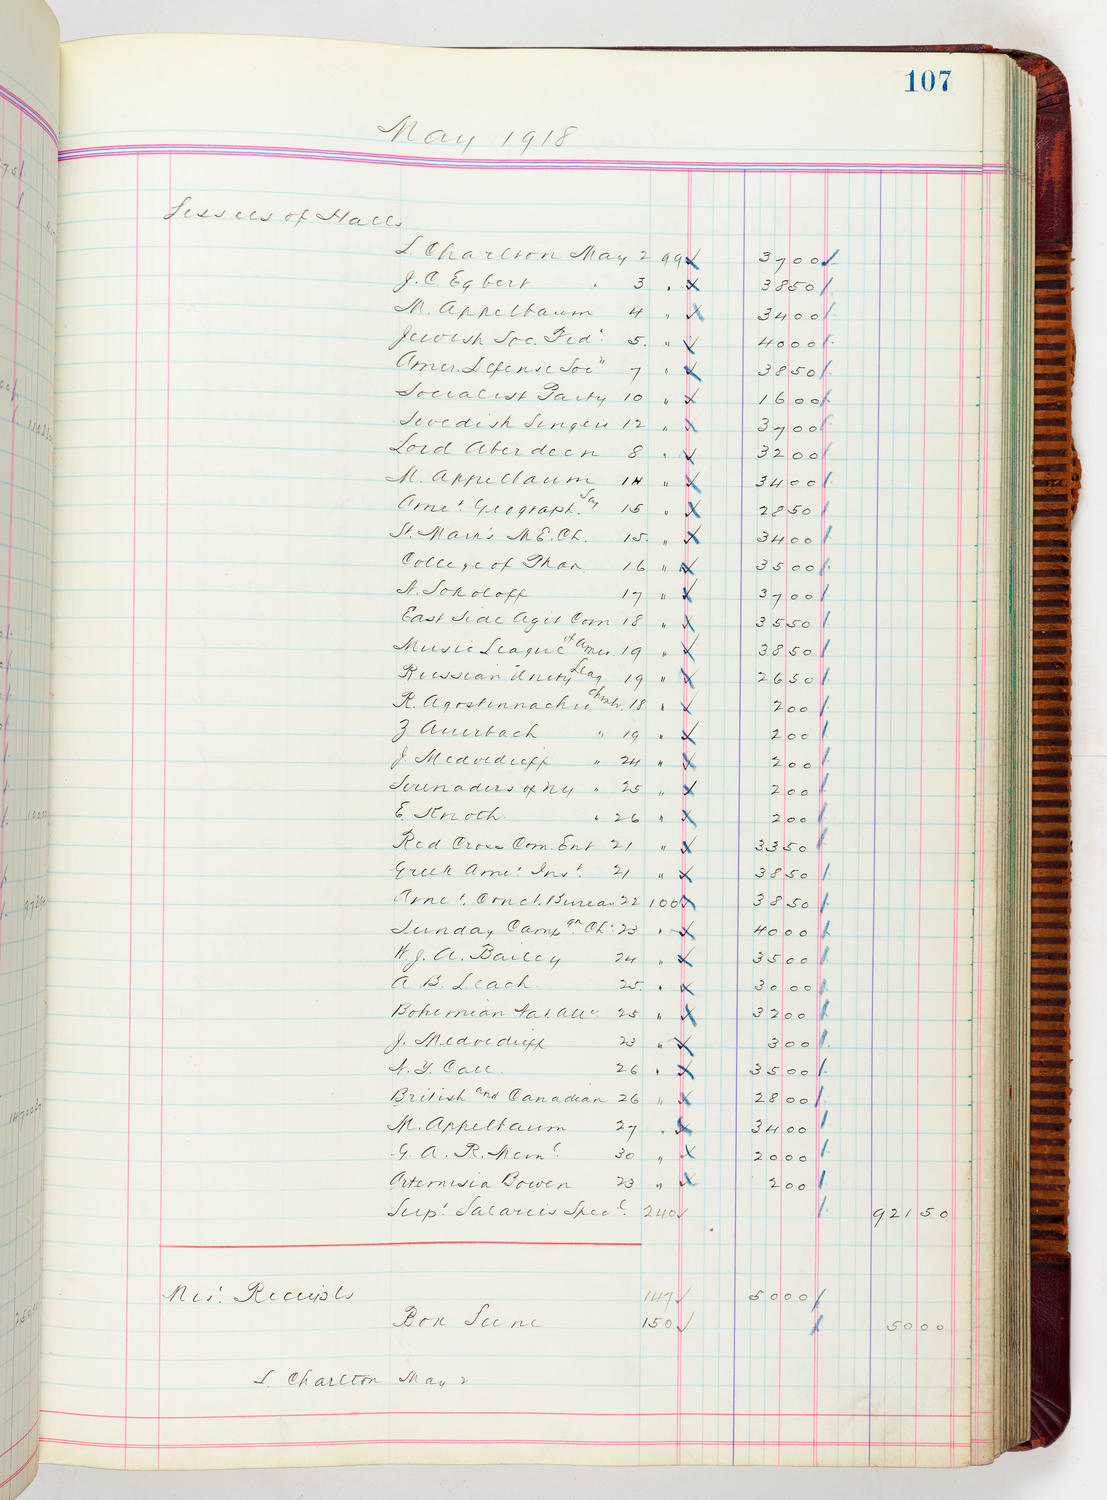 107
May 1918
Lessees of Halls
L. Charlton May 2 99 3700
J. C. Egbert " 3 " 3850
M. Appelbaum 4 " 3400
Jewish Soc. Fed. 5 " 4000
Amer. Defense Soc 7 " 3850
Socialist Party 10 " 1600
Swedish Singers 12 " 3700
Lord Aberdeen 8 " 3200
M. Appelbaum 14 " 3400
Amer. Geograph. Soy 15 " 2850
St. Mark's M.E. Ch. 15 " 3400
College of Phar. 16 " 3500
N. Sokoloff 17 " 3700
East Side Agit Com 18 " 3550
Music League of Amer. 19 " 3850
Russian Unity Leag 19 " 2650
R. Agostinnachio Chmbr. 18 " 200
Z Auerbach " 19 " 200
J. Medvedieff " 24 " 200
Serenaders of NY " 25 " 200
E. Knoth " 26 " 200
Red Cross Com. Ent 21 " 3350
Greek Amer. Inst. 21 " 3850
Amer. Conct. Bureau 22 100 3850
Sunday Campgn. Ch. 23 " 4000
W. J. A. Bailey 24 " 3500
A. B. Leach 25 " 3000
Bohemian Nat. Alle 25 " 3200
J. Medvedieff 23 " 300
N. Y Call 26 " 3500
British and Canadian 26 " 2800
M. Appelbaum 27 " 3400
G. A. R. Meml. 30 " 2000
Artemisia Bowen 23 " 200
Supt. Salaries Specl. 240 92150
Misl. Receipts 147 5000
Box Scene 150 5000
L. Charlton May 2